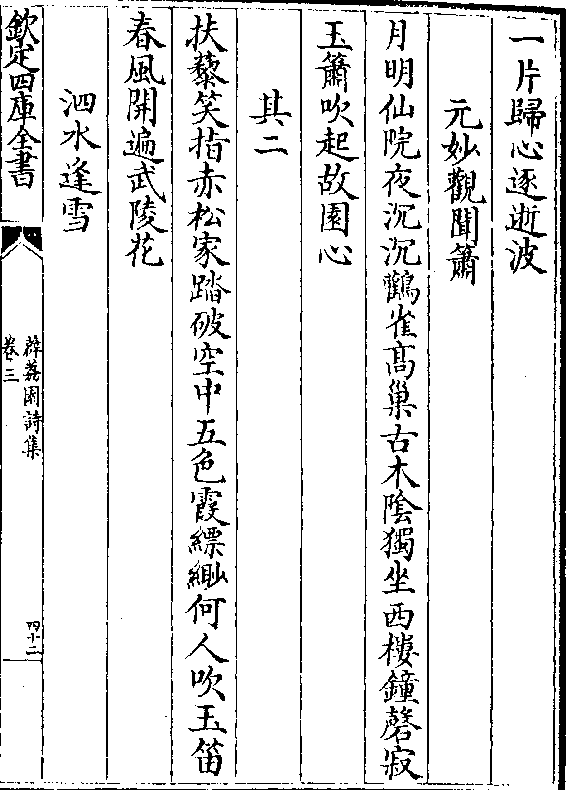 一片歸心逐逝波
元妙觀聞簫
月明仙院夜沉沉鸛雀髙巢古木陰獨坐西樓鐘磬寂
玉簫吹起故園心
其二
扶藜笑指赤松家踏破空中五色霞縹緲何人吹玉笛
春風開遍武陵花
泗水逢雪
欽定四庫全書
薜荔園詩集
卷三
四十二